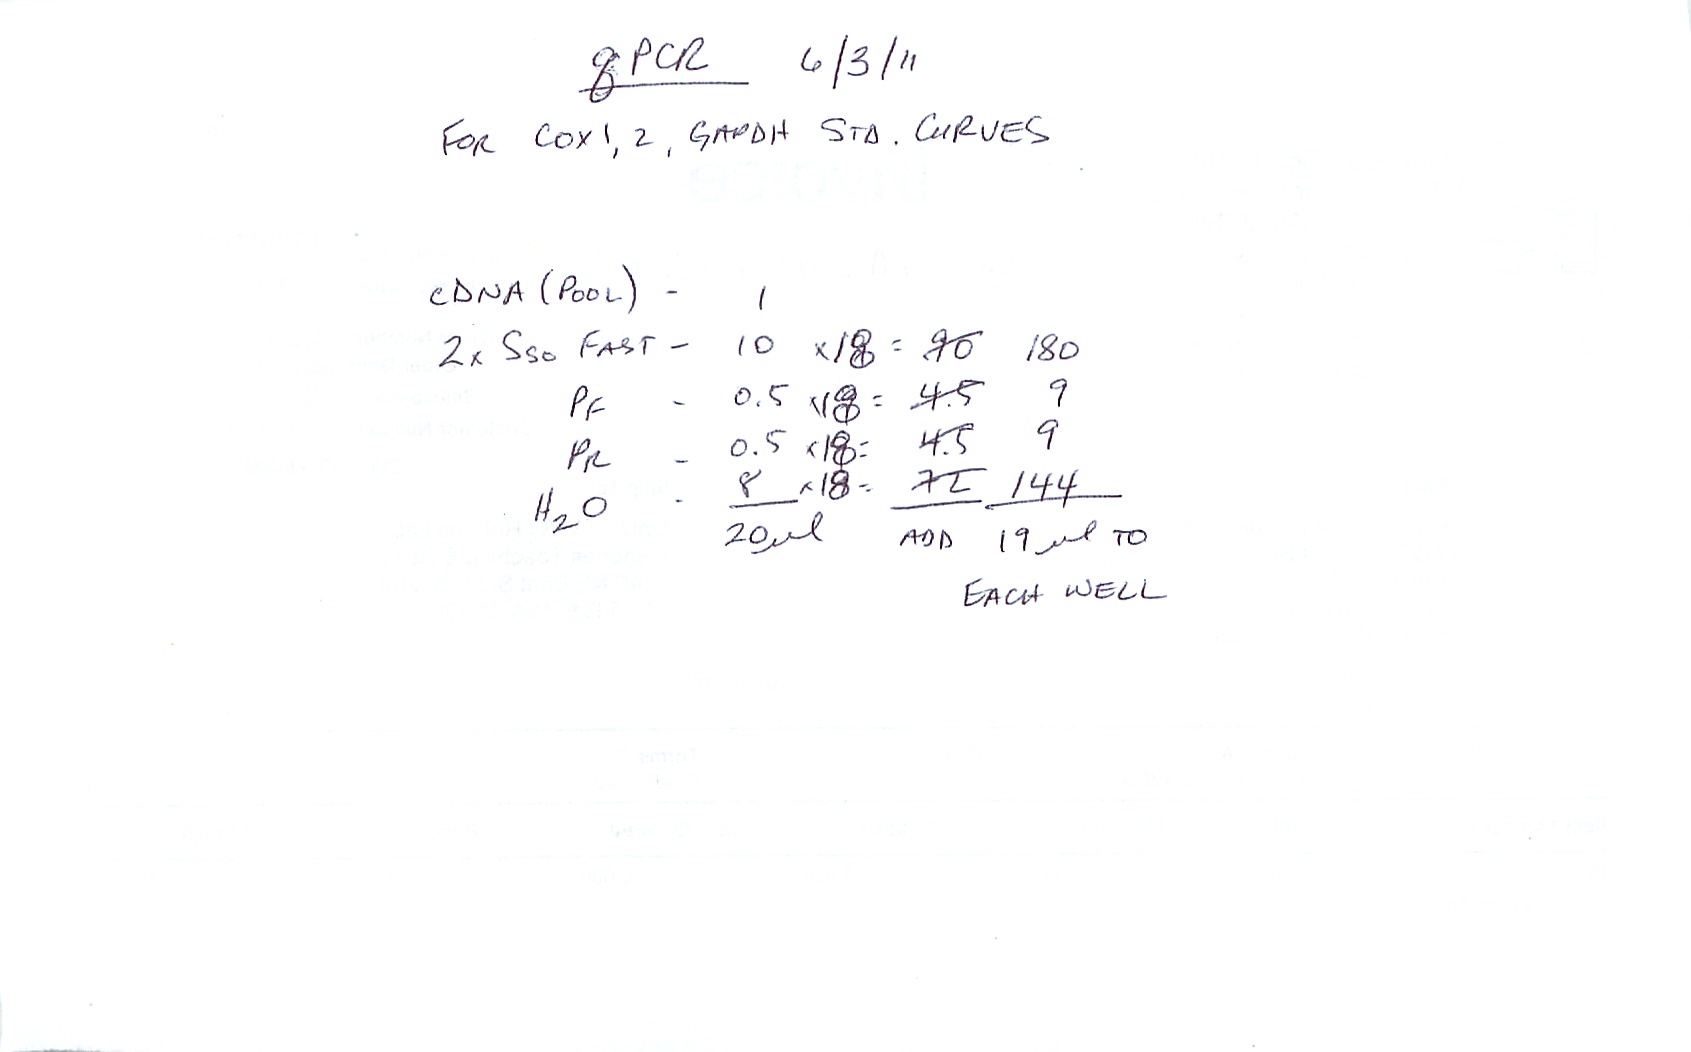 qPCR 6/3/11
FOR COX 1, 2, GAPDH STD. CURVES
cDNA (POOL) - 1
2x SSO FAST - 10 x18 = 90 180
PF - 0.5 x18 = 4.5 9
PR - 0.5 x18= 4.5 9
H2O - 8 x18= 72 144
20µl ADD 19 µl TO
EACH WELL